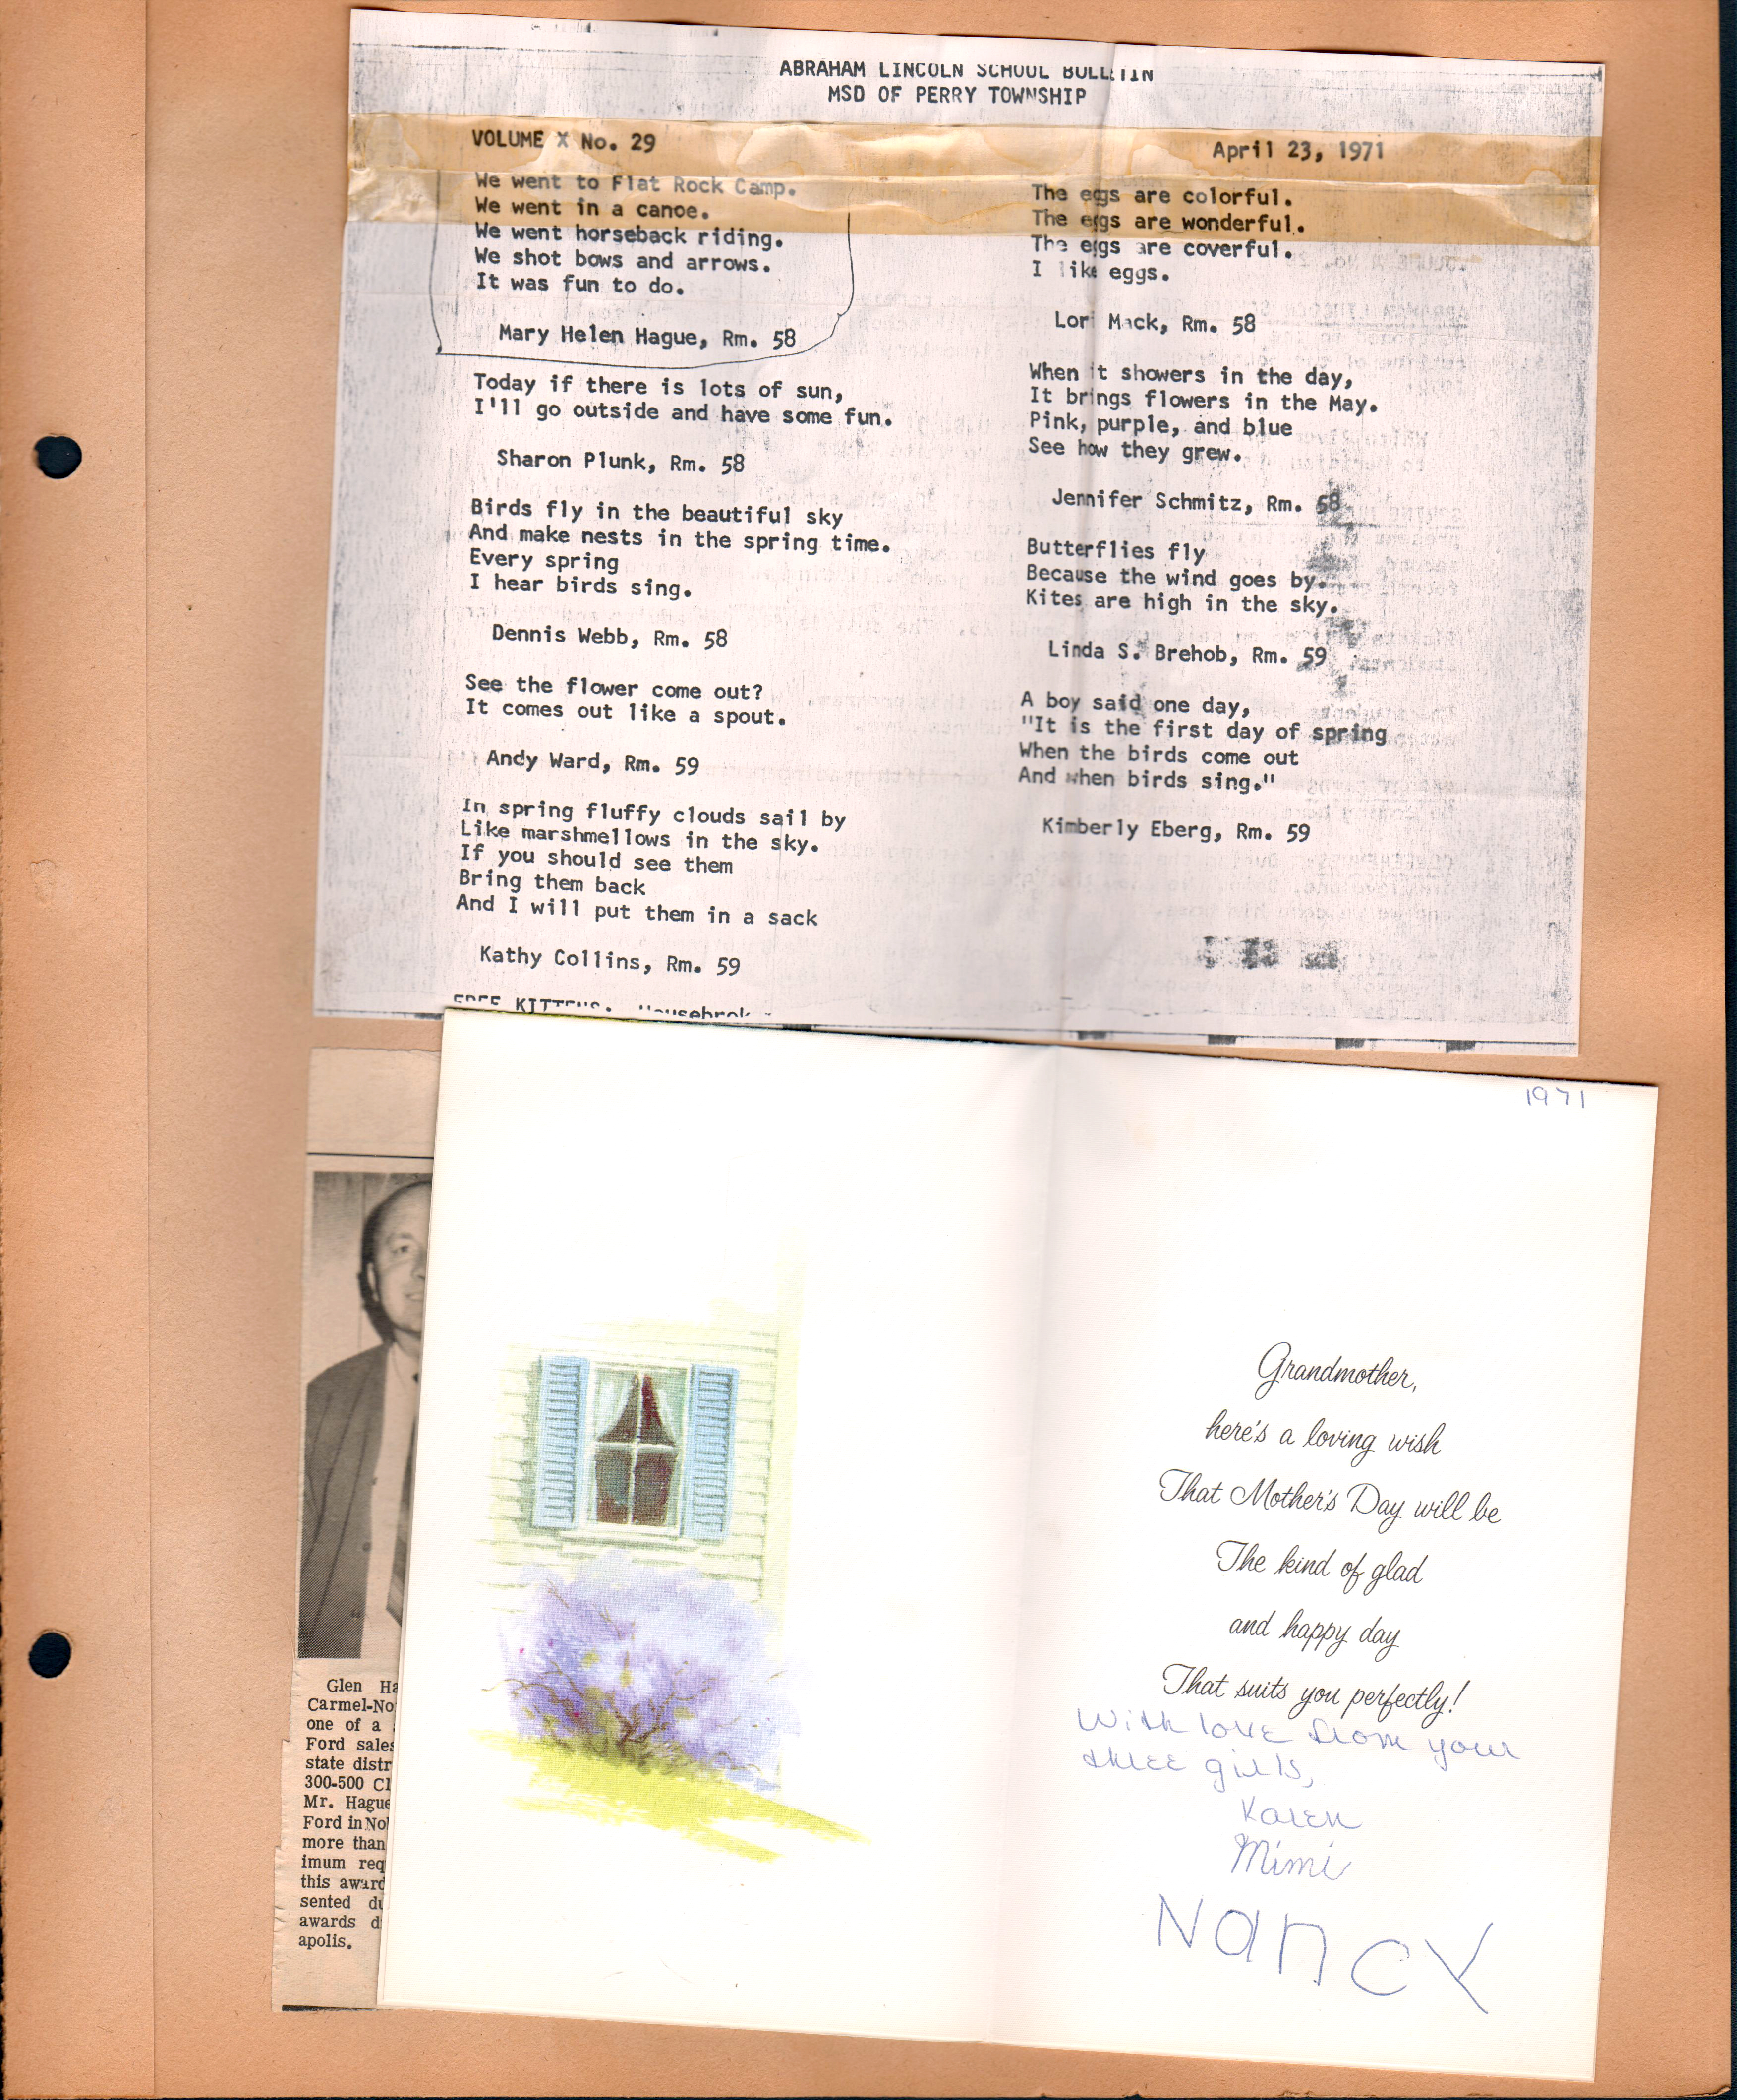 ABRAHAM LINCOLN SCHOOL BULLETIN
MSD OF PERRY TOWNSHIP
VOLUME X No. 29
April 23, 1971
We went to Flat Rock Camp.
We went in a canoe.
We went horseback riding.
We shot bows and arrows.
It was fun to do.
Mary Helen Hague, Rm. 58
Today if there is lots of sun,
I'll go outside and have some fun.
Sharon Plunk, Rm. 58
Birds fly in the beautiful sky
And make nests in the spring time.
Every spring
I hear birds sing.
Dennis Webb, Rm. 58
See the flower come out?
It comes out like a spout.
Andy Ward, Rm. 59
In spring fluffy clouds sail by
Like marshmellows in the sky.
If you should see them
Bring them back
And I will put them in a sack
Kathy Collins, Rm. 59
FREE KITTENS. Housebrok
The eggs are colorful.
The eggs are wonderful.
The eggs are coverful.
I like eggs.
Lori Mack, Rm. 58
When it showers in the day,
It brings flowers in the May.
Pink, purple, and blue
See how they grew.
Jennifer Schmitz, Rm. 58
Butterflies fly
Because the wind goes by.
Kites are high in the sky.
Linda S. Brehob, Rm. 59
A boy said one day,
"It is the first day of spring
When the birds come out
And when birds sing."
Kimberly Eberg, Rm. 59
Glen Ha
Carmel-No
one of a
Ford sales
state distr
300-500 Cl
Mr. Hague
Ford in No
more than
imum req
this award
sented du
awards d
apolis.
1971
Grandmother,
here's a loving wish
That Mother's Day will be
The kind of glad
and happy day
That suits you perfectly!
With love from your
three girls,
Karen
Mimi
Nancy